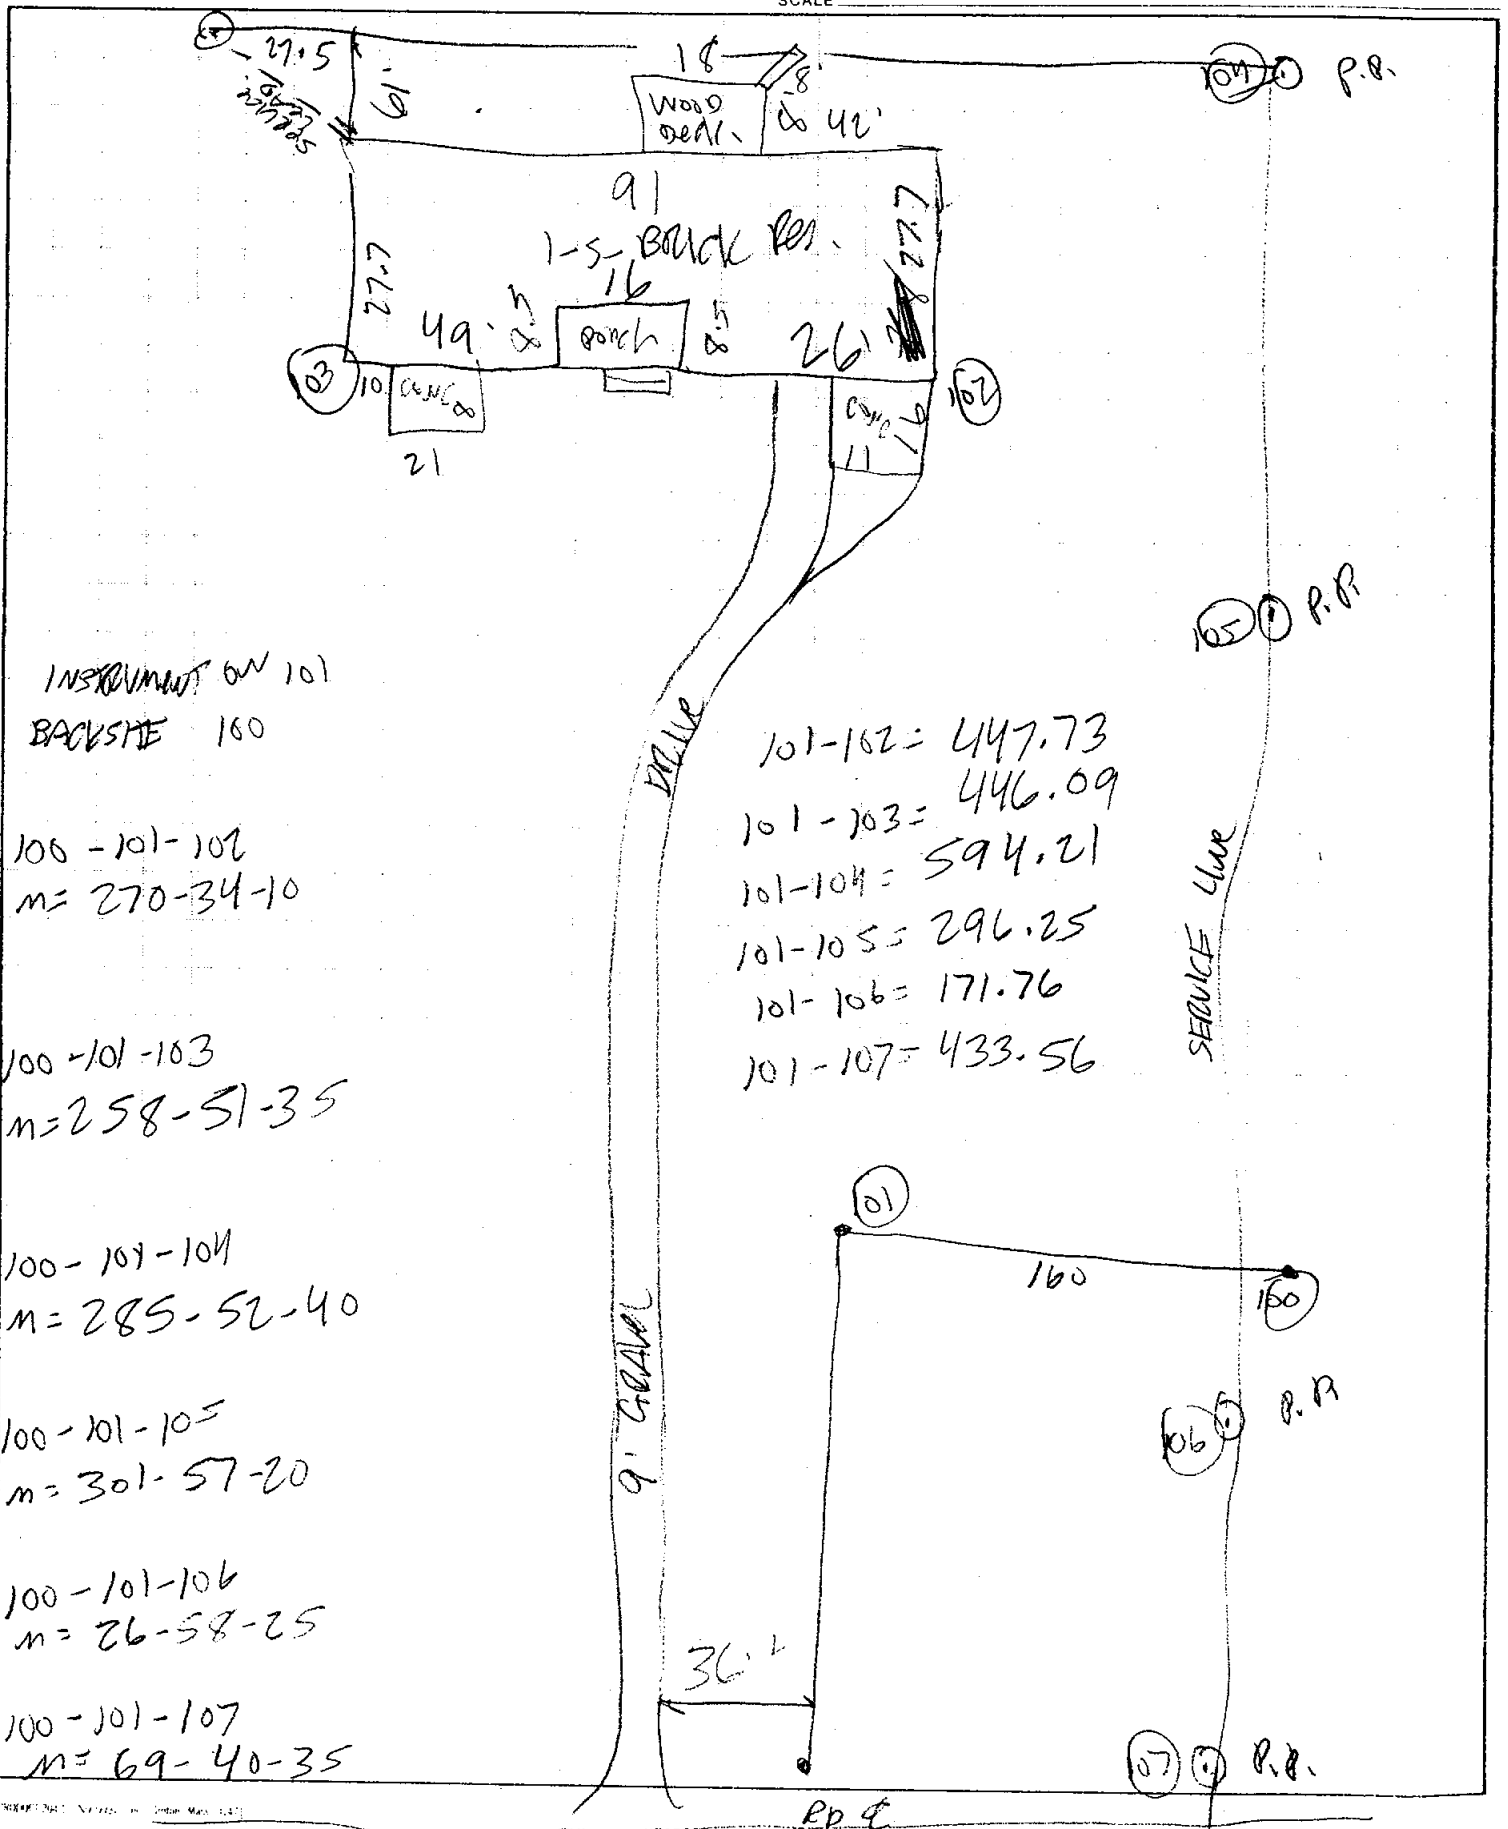 SCALE
27.5
19'
SERVICE
LEAD
18
8
WOOD
DECK
8
42'
104
P.P.
91
1-S- BRICK RES.
27.7
27.7
16
49'
8.5
PORCH
8.5
26'
103
10
CONC
8
21
CONC
16
11
102
105
P.P.
INSTRUMENT ON 101
BACKSITE 100
100 - 101 - 102
m= 270-34-10
100 - 101 - 103
m= 258-51-35
100 - 101 - 104
m= 285-52-40
100 - 101 - 105
m= 301-57-20
100 - 101 - 106
m= 26-58-25
100 - 101 - 107
m= 69-40-35
DRIVE
9' GRAVEL
101-102= 447.73
101-103= 446.09
101-104= 594.21
101-105= 296.25
101-106= 171.76
101-107= 433.56
SERVICE LINE
101
160
100
106
P.P.
36'
107
P.P.
RD ℄